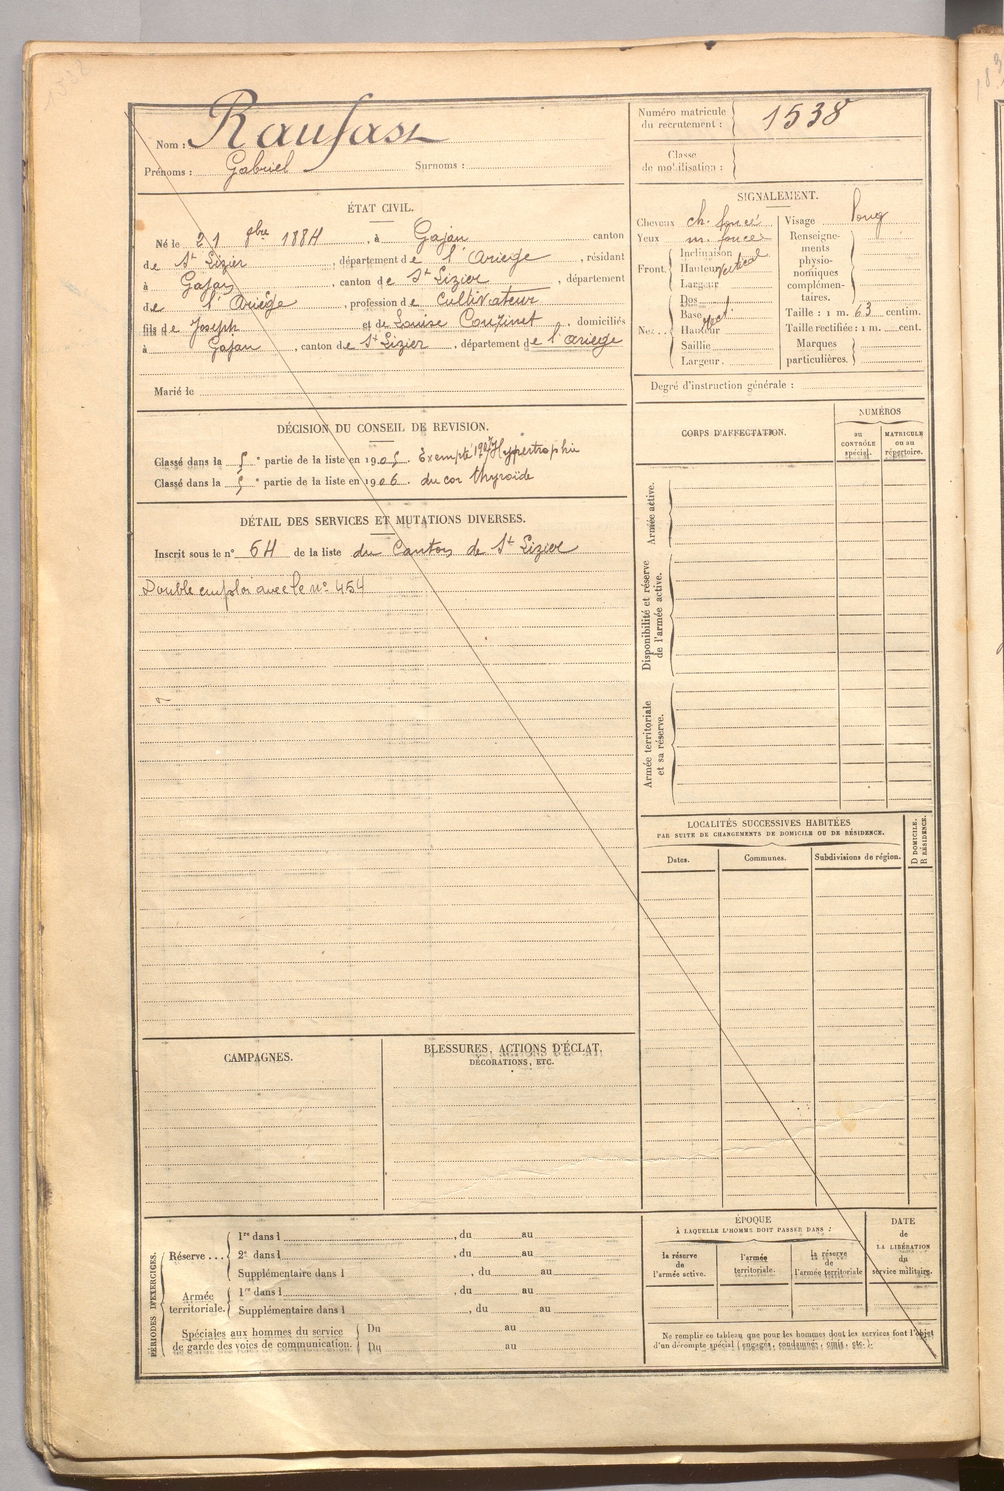 Nom : Raufast
Prénoms : Gabriel Surnoms :
Numéro matricule du recrutement : 1538
Classe de mobilisation :
ÉTAT CIVIL.
Né le 21 9bre 1884, à Gajan canton
de St Lizier, département de l'Ariège, résidant
à Gajan, canton de St Lizier, département
de l'Ariège, profession de Cultivateur
fils de Joseph et de Louise Couzinet, domiciliés
à Gajan, canton de St Lizier, département de l'Ariège
Marié le
SIGNALEMENT.
Cheveux ch. foncé
Yeux m. foncé
Front. Inclinaison
Hauteur vertical
Largeur
Nez. Dos
Base
Hauteur rect.
Saillie
Largeur.
Visage long
Renseignements physionomiques complémentaires.
Taille : 1 m. 63 centim.
Taille rectifiée : 1 m. cent.
Marques particulières.
Degré d'instruction générale :
DÉCISION DU CONSEIL DE REVISION.
Classé dans la 5e partie de la liste en 1905. Exempté 1907 Hypertrophie
Classé dans la 5e partie de la liste en 1906. du cor thyroïde
DÉTAIL DES SERVICES ET MUTATIONS DIVERSES.
Inscrit sous le n° 64 de la liste du Canton de St Lizier
Double emploi avec le n° 454
CORPS D'AFFECTATION.
NUMÉROS
au CONTRÔLE spécial.
MATRICULE ou au répertoire.
Armée active.
Disponibilité et réserve de l'armée active.
Armée territoriale et sa réserve.
LOCALITÉS SUCCESSIVES HABITÉES
PAR SUITE DE CHANGEMENTS DE DOMICILE OU DE RÉSIDENCE.
Dates. Communes. Subdivisions de région. D DOMICILE. R RÉSIDENCE.
CAMPAGNES.
BLESSURES, ACTIONS D'ÉCLAT,
DÉCORATIONS, ETC.
PÉRIODES D'EXERCICES.
Réserve... 1re dans l , du au
2e dans l , du au
Supplémentaire dans l , du au
Armée territoriale. 1re dans l , du au
Supplémentaire dans l , du au
Spéciales aux hommes du service de garde des voies de communication. Du au
Du au
ÉPOQUE
À LAQUELLE L'HOMME DOIT PASSER DANS :
la réserve de l'armée active.
l'armée territoriale.
la réserve de l'armée territoriale
DATE de LA LIBÉRATION du service militaire.
Ne remplir ce tableau que pour les hommes dont les services font l'objet
d'un décompte spécial (engagés, condamnés, omis, etc.).